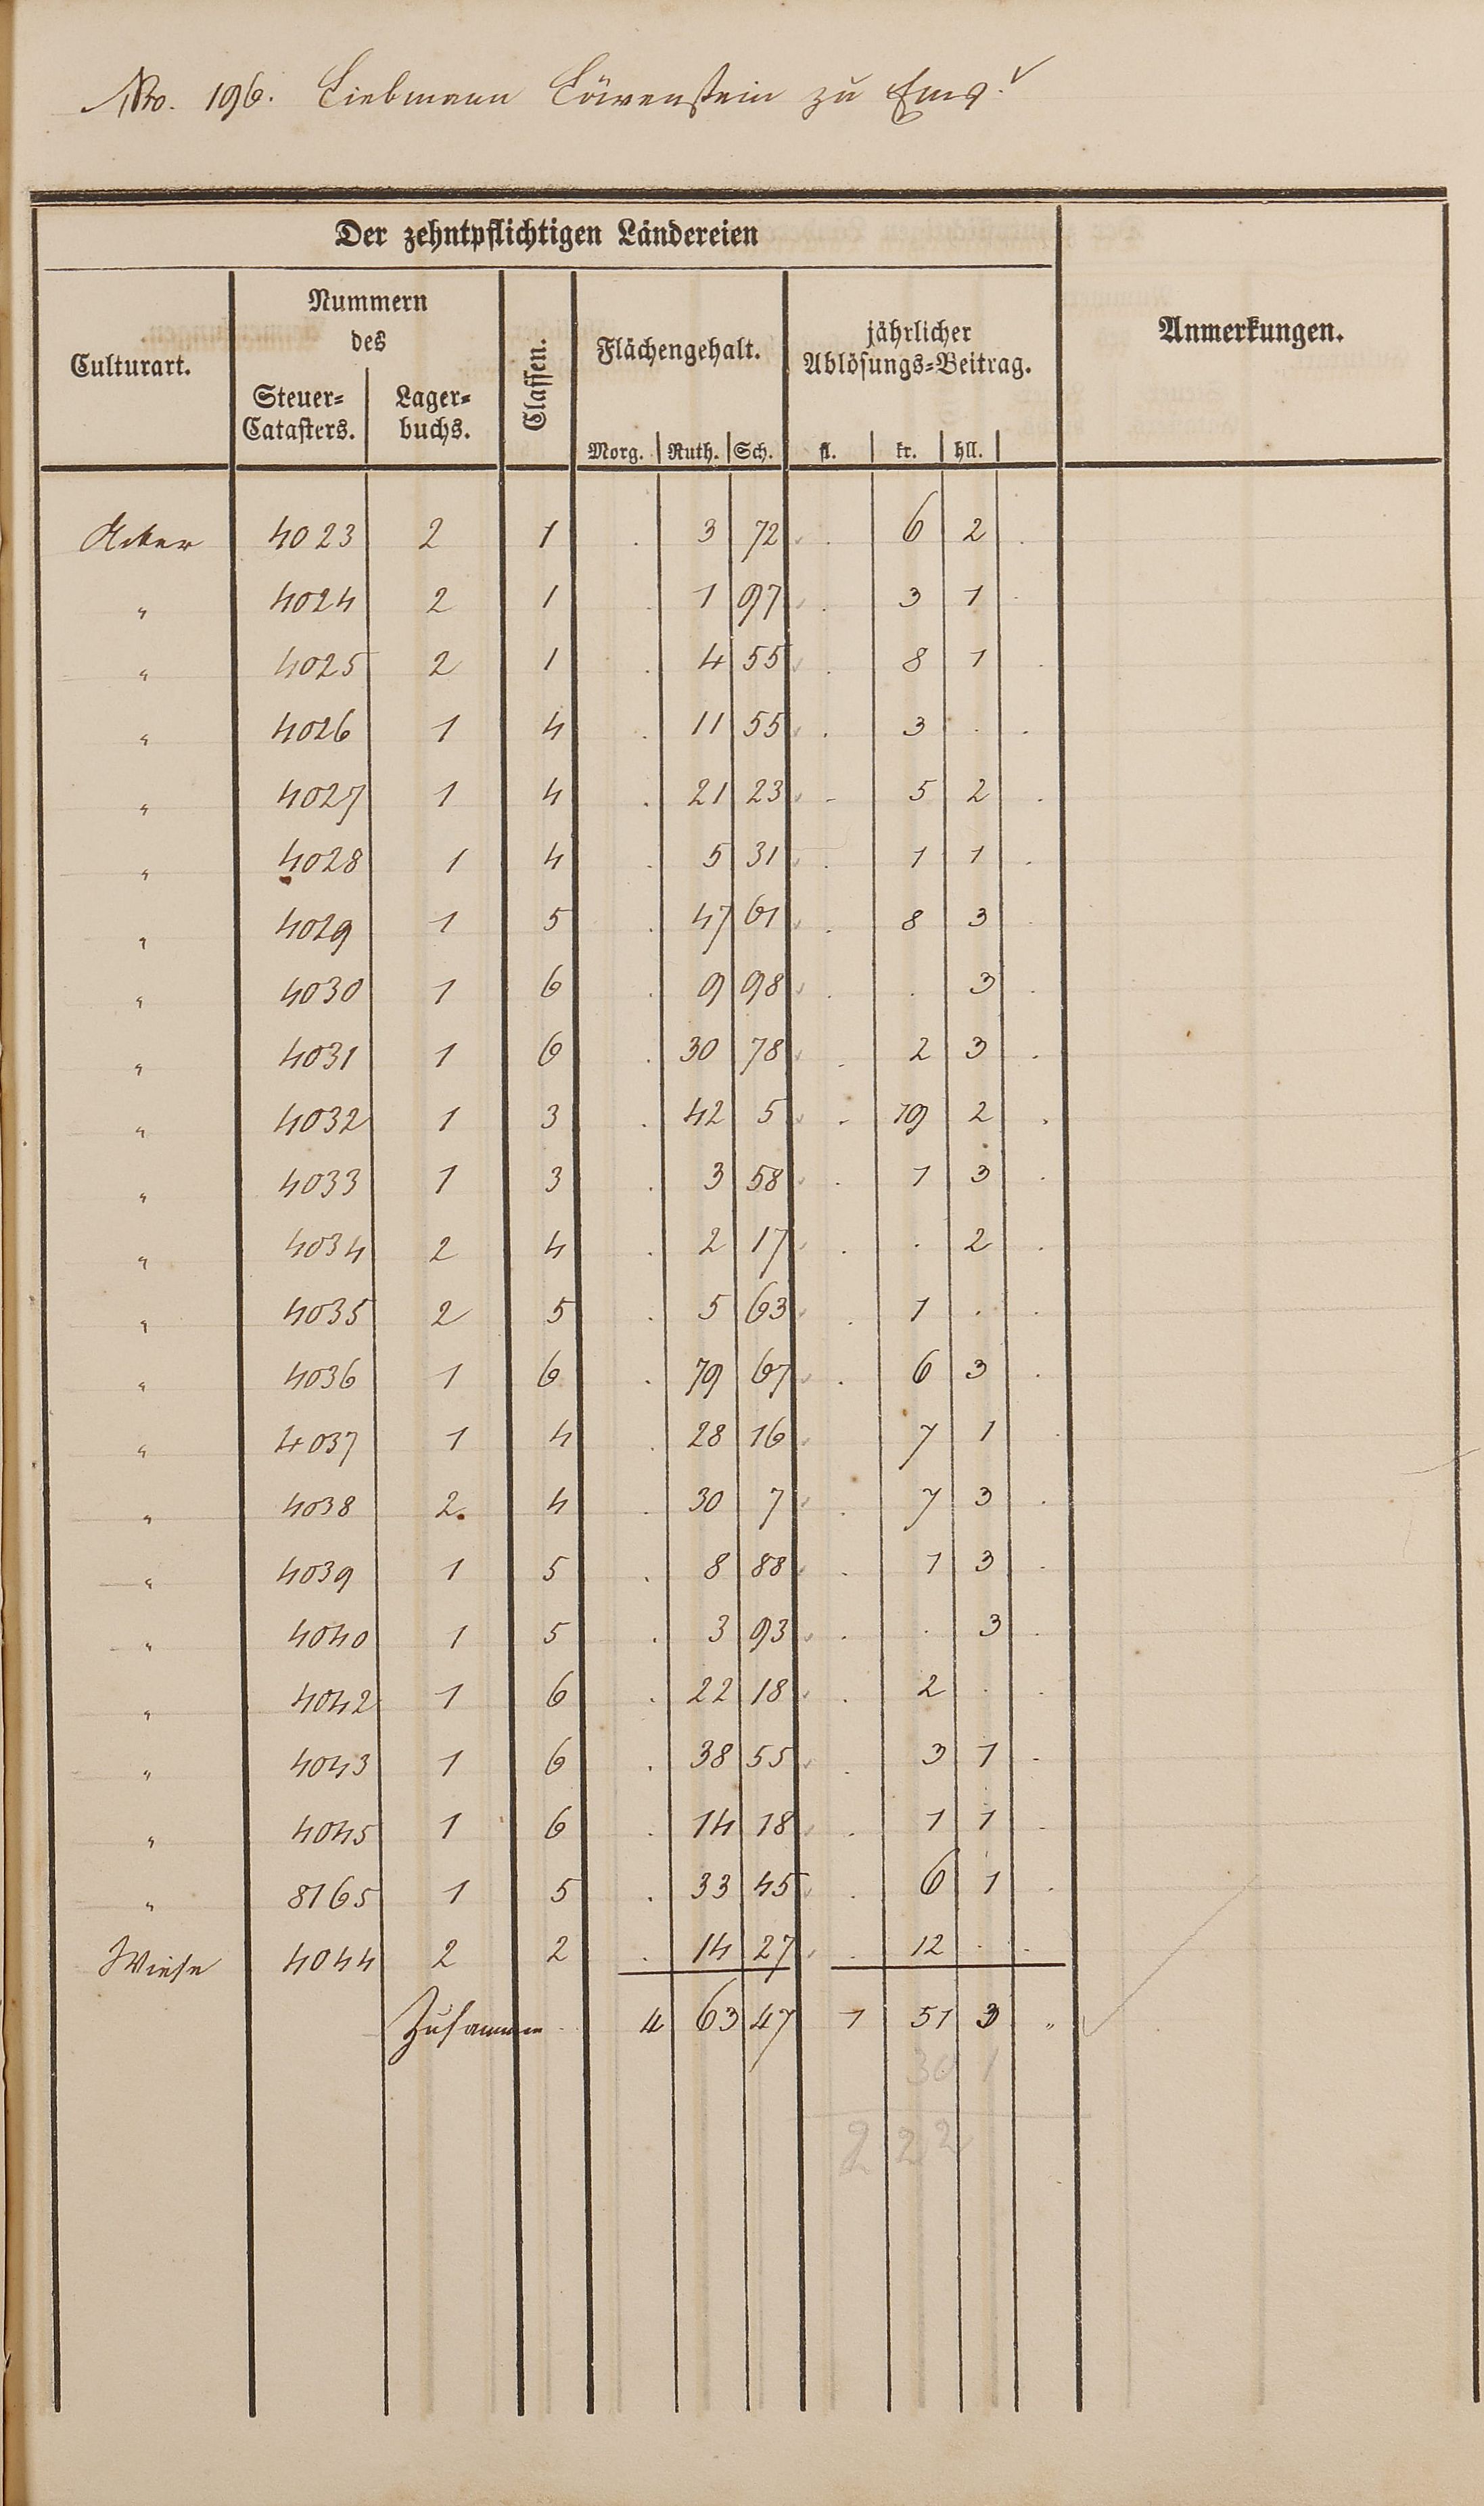 Nro. 196. Liebmann Löwenstein zu Ems.
Der zehntpflichtigen Ländereien
Culturart. Nummern des Steuer-Catasters. Lagerbuchs. Classen. Flächengehalt. jährlicher Ablösungs-Beitrag. Anmerkungen.
Morg. Ruth. Sch. fl. kr. hll.
Acker 4023 2 1 . 3 72 . 6 2 .
" 4024 2 1 . 1 97 . 3 1 .
" 4025 2 1 . 4 55 . 8 1 .
" 4026 1 4 . 11 55 . 3 . .
" 4027 1 4 . 21 23 . 5 2 .
" 4028 1 4 . 5 31 . 1 1 .
" 4029 1 5 . 47 61 . 8 3 .
" 4030 1 6 . 9 98 . . 3 .
" 4031 1 6 . 30 78 . 2 3 .
" 4032 1 3 . 42 5 . 19 2 .
" 4033 1 3 . 3 58 . 1 3 .
" 4034 2 4 . 2 17 . . 2 .
" 4035 2 5 . 5 63 . 1 . .
" 4036 1 6 . 79 67 . 6 3 .
" 4037 1 4 . 28 16 7 1 .
" 4038 2. 4 . 30 7 . 7 3 .
" 4039 1 5 . 8 88 . 1 3 .
" 4040 1 5 . 3 93 . . 3 .
" 4042 1 6 . 22 18 . 2 . .
" 4043 1 6 . 38 55 . 3 1 .
" 4045 1 6 . 14 18 . 1 1 .
" 8165 1 5 . 33 45 . 6 1 .
Wiese 4044 2 2 . 14 27 . 12 . .
Zusammen 4 63 47 1 51 3 "
30 1
2 22